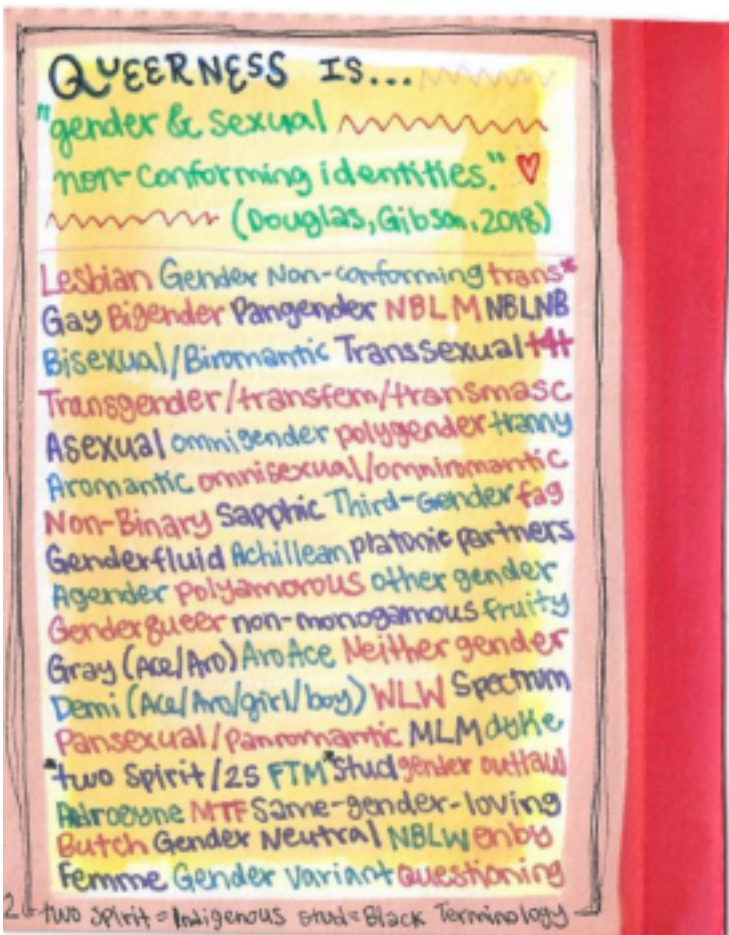 QUEERNESS IS...
"gender & sexual
non-conforming identities." ♡
(Douglas, Gibson, 2018)
Lesbian Gender Non-conforming trans*
Gay Bigender Pangender NBLM NBLNB
Bisexual/Biromantic Transsexual t4t
Transgender/transfem/transmasc
Asexual omnigender polygender tranny
Aromantic omnisexual/omniromantic
Non-Binary Sapphic Third-Gender fag
Genderfluid Achillean platonic partners
Agender polyamorous other gender
Genderqueer non-monogamous fruity
Gray (Ace/Aro) AroAce Neither gender
Demi (Ace/Aro/girl/boy) WLW Spectrum
Pansexual/Panromantic MLM dyke
*two Spirit/2S FTM *Stud gender outlaw
Androgyne MTF Same-gender-loving
Butch Gender Neutral NBLW enby
Femme Gender Variant Questioning
2 two spirit = Indigenous stud = Black Terminology